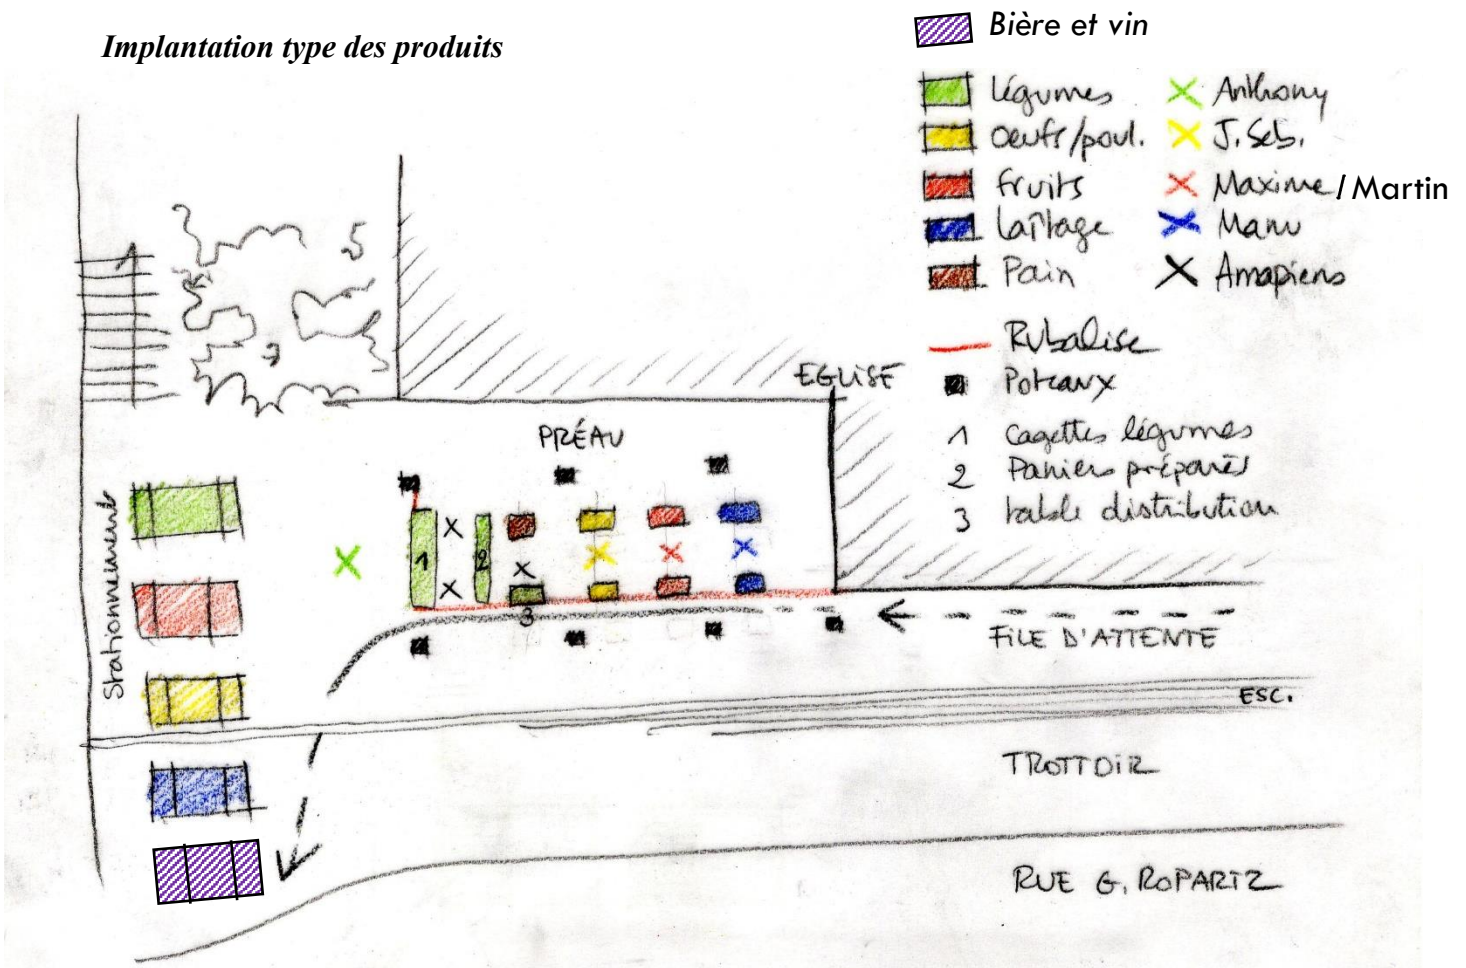 Implantation type des produits
Bière et vin
légumes
oeufs/poul.
fruits
laîtage
Pain
Anthony
J. Seb.
Maxime / Martin
Manu
Amapiens
Rubalise
Poteaux
1 Cagettes légumes
2 Paniers préparés
3 table distribution
EGLISE
PRÉAU
Stationnement
1
2
3
FILE D'ATTENTE
ESC.
TROTTOIR
RUE G. ROPARTZ